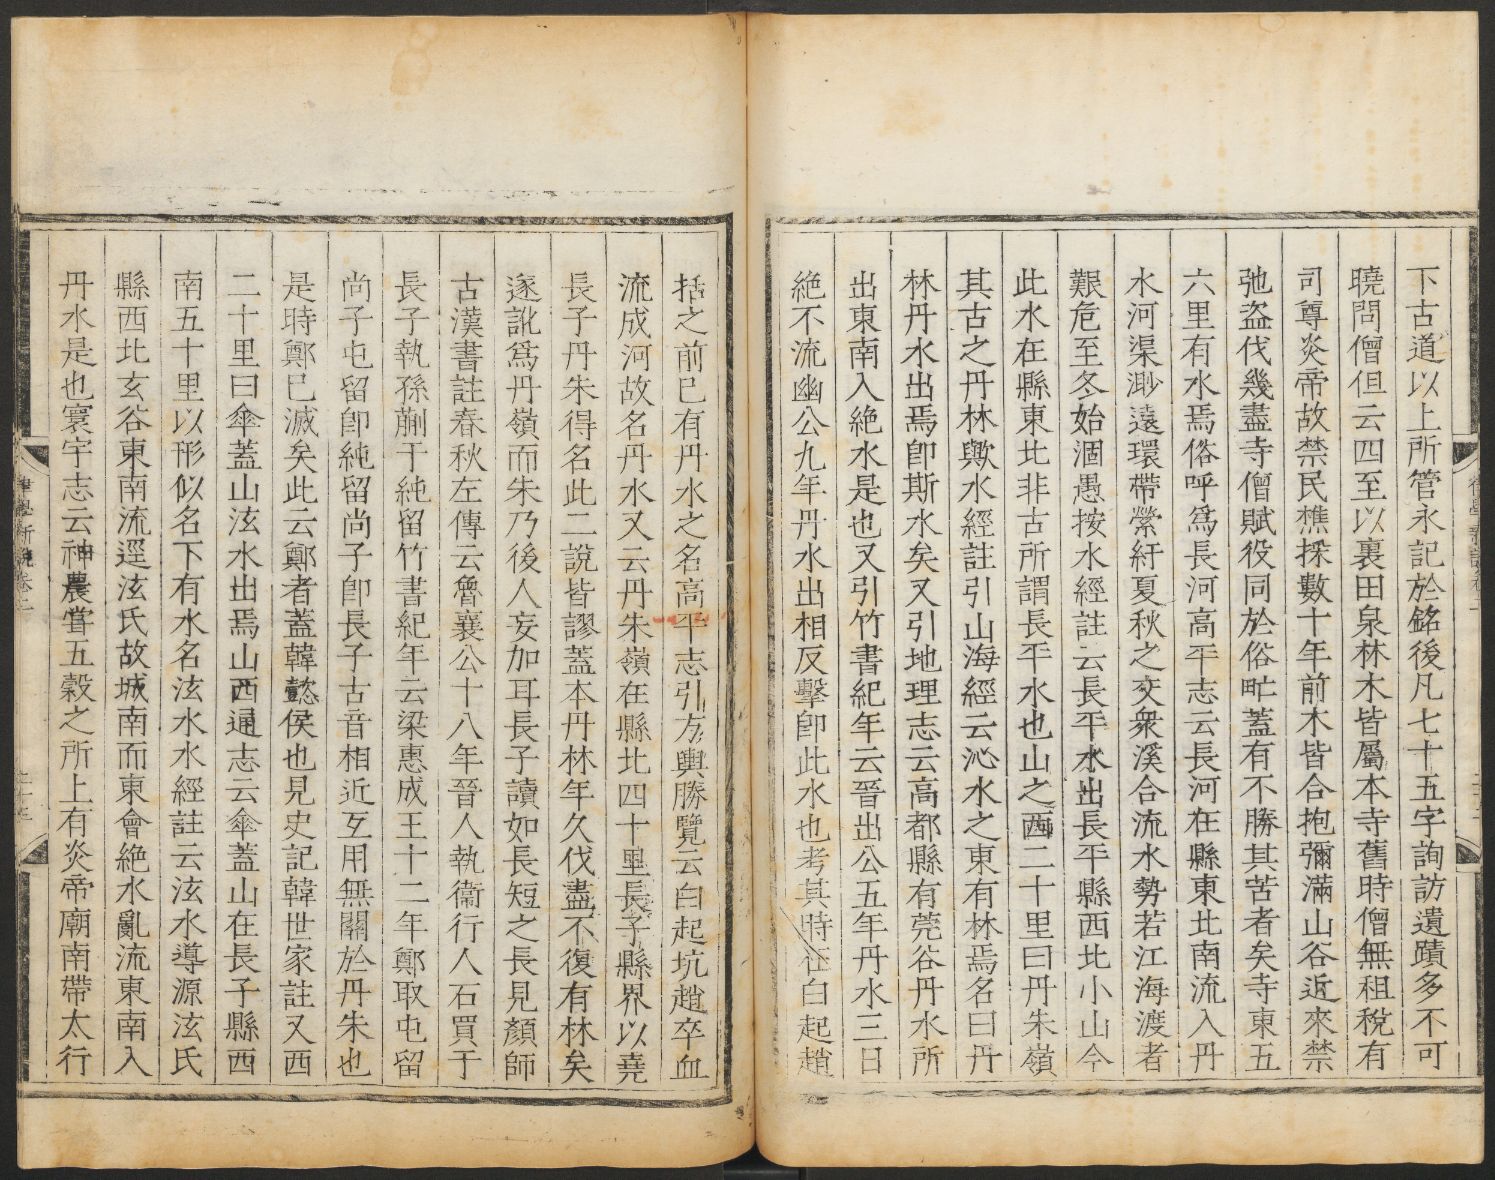 下古道以上所管永記於銘後凡七十五字詢訪遺蹟多不可
曉問僧但云四至以裏田泉林木皆屬本寺舊時僧無租稅有
司尊炎帝故禁民樵採數十年前木皆合抱彌滿山谷近來禁
弛盜伐幾盡寺僧賦役同於俗甿蓋有不勝其苦者矣寺東五
六里有水焉俗呼爲長河高平志云長河在縣東北南流入丹
水河渠渺遠環帶縈紆夏秋之交衆溪合流水勢若江海渡者
艱危至冬始涸愚按水經註云長平水出長平縣西北小山今
此水在縣東北非古所謂長平水也山之西二十里曰丹朱嶺
其古之丹林歟水經註引山海經云沁水之東有林焉名曰丹
林丹水出焉卽斯水矣又引地理志云高都縣有莞谷丹水所
出東南入絶水是也又引竹書紀年云晉出公五年丹水三日
絶不流幽公九年丹水出相反擊卽此水也考其時在白起趙
括之前已有丹水之名高平志引方輿勝覽云白起坑趙卒血
流成河故名丹水又云丹朱嶺在縣北四十里長子縣界以堯
長子丹朱得名此二說皆謬蓋本丹林年久伐盡不復有林矣
遂訛爲丹嶺而朱乃後人妄加耳長子讀如長短之長見顏師
古漢書註春秋左傳云魯襄公十八年晉人執衞行人石買于
長子執孫蒯于純留竹書紀年云梁惠成王十二年鄭取屯留
尚子屯留卽純留尚子卽長子古音相近互用無關於丹朱也
是時鄭已滅矣此云鄭者蓋韓懿侯也見史記韓世家註又西
二十里曰傘蓋山泫水出焉山西通志云傘蓋山在長子縣西
南五十里以形似名下有水名泫水水經註云泫水導源泫氏
縣西北玄谷東南流逕泫氏故城南而東會絶水亂流東南入
丹水是也寰宇志云神農嘗五穀之所上有炎帝廟南帶太行